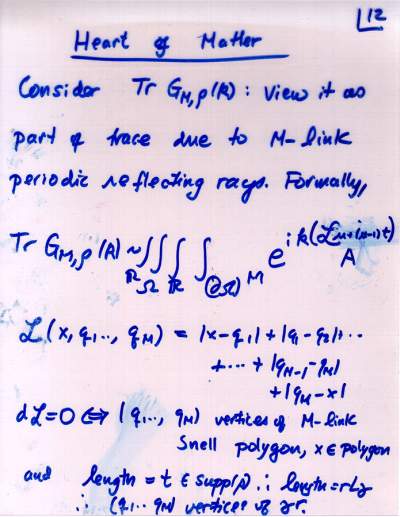 12
Heart of Matter
Consider Tr G_{M,ρ}(k) : View it as
part of trace due to M-link
periodic reflecting rays. Formally,
Tr G_{M,ρ}(k) ~ ∫_ℝ ∫_Ω ∫_ℝ ∫_{(∂Ω)^M} e^{ik(ℒ_{M}+( )t)} A
ℒ(x, q_1.., q_M) = |x-q_1| + |q_1-q_2|...
+...+ |q_{M-1}-q_M|
+ |q_M-x|
dℒ=0 ⇔ (q_1..., q_M) vertices of M-link
Snell polygon, x ∈ polygon
and length = t ∈ supp(ρ) ∴ length = rL_γ
∴ (q_1... q_M) vertices of γ^r.